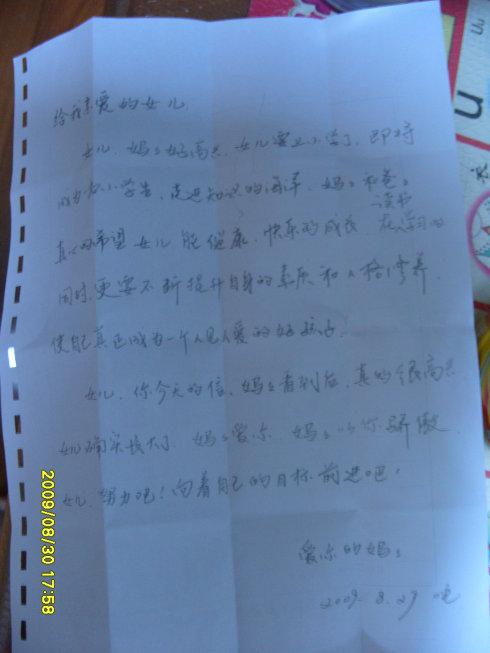 给我亲爱的女儿
女儿、妈妈好高兴、女儿要上小学了、即将
成为小学生、走进知识的海洋、妈妈和爸爸
真心的希望女儿能健康、快乐的成长、在读书学习的
同时、更要不断提升自身的素质和人格修养、
使自己真正成为一个人见人爱的好孩子。
女儿、你今天的信、妈妈看到后、真的很高兴、
女儿确实长大了、妈妈爱你、妈妈以你骄傲、
女儿、努力吧！向着自己的目标前进吧！
爱你的妈妈
2009.8.29
2009/08/30 17:58